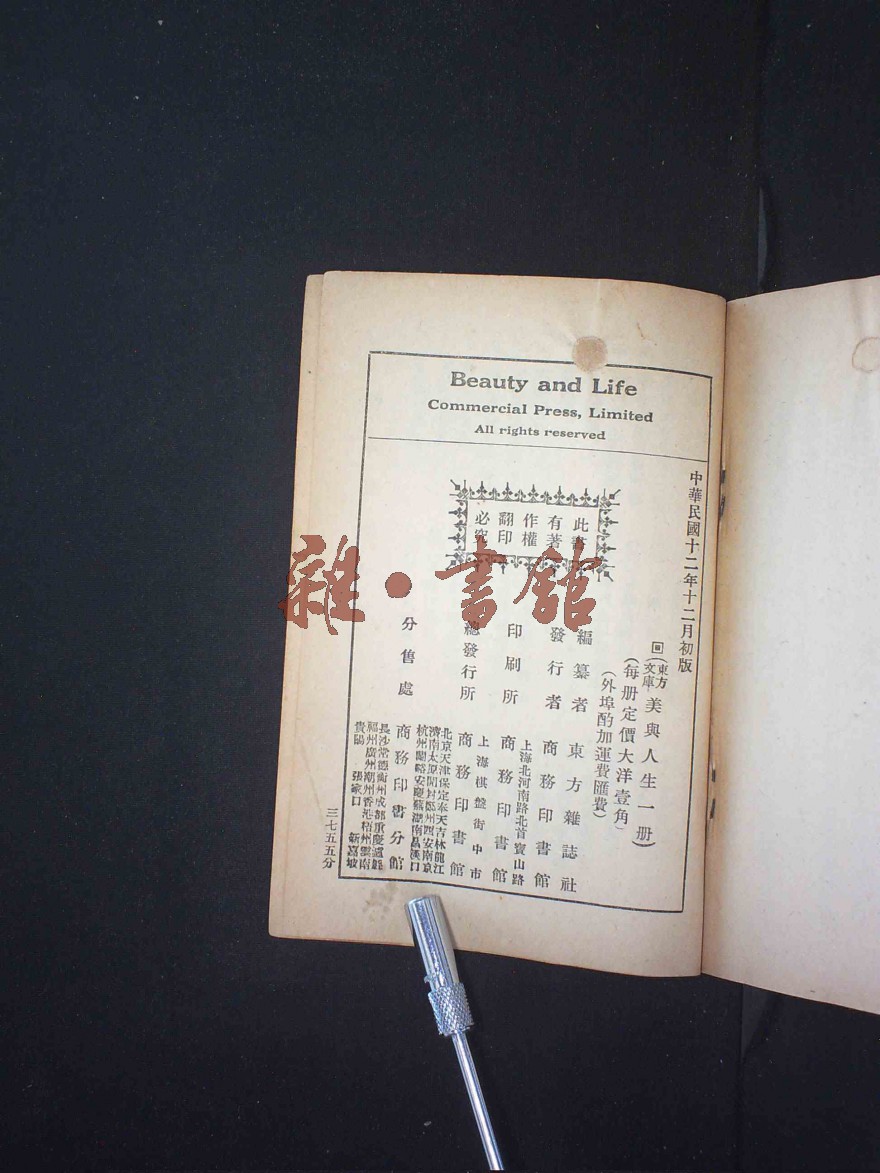 Beauty and Life
Commercial Press, Limited
All rights reserved
中華民國十二年十二月初版
(東方文庫)美與人生一册)
(每册定價大洋壹角)
(外埠酌加運費匯費)
此書
有著
作權
翻印
必究
編纂者 東方雜誌社
發行者 商務印書館
印刷所 上海北河南路北首寶山路
商務印書館
總發行所 上海棋盤街中市
商務印書館
分售處 北京天津保定奉天吉林龍江
濟南太原開封鄭州西安南京
杭州蘭谿安慶蕪湖南昌漢口
商務印書分館
長沙常德衡州成都重慶瀘縣
福州廣州潮州香港梧州雲南
貴陽 張家口 新嘉坡
三七五五分
雜·書館